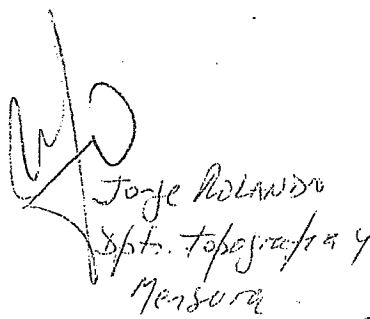 Jorge ROLANDO
Dpto. Topografia y
Mensura